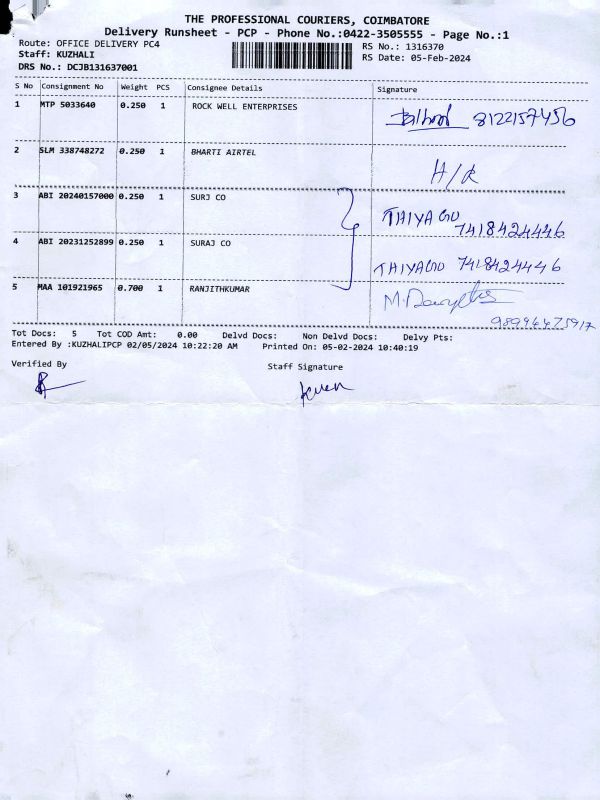 THE PROFESSIONAL COURIERS, COIMBATORE
Delivery Runsheet - PCP - Phone No.:0422-3505555 - Page No.:1
Route: OFFICE DELIVERY PC4 RS No.: 1316370
Staff: KUZHALI RS Date: 05-Feb-2024
DRS No.: DCJB131637001
S No Consignment No Weight PCS Consignee Details Signature
1 MTP 5033640 0.250 1 ROCK WELL ENTERPRISES 8122157456
2 SLM 338748272 0.250 1 BHARTI AIRTEL H/R
3 ABI 20240157000 0.250 1 SURJ CO THIYAGU
7418424446
4 ABI 20231252899 0.250 1 SURAJ CO
THIYAGU 7418424446
5 MAA 101921965 0.700 1 RANJITHKUMAR
Tot Docs: 5 Tot COD Amt: 0.00 Delvd Docs: Non Delvd Docs: Delvy Pts:
Entered By :KUZHALIPCP 02/05/2024 10:22:20 AM Printed On: 05-02-2024 10:40:19
Verified By Staff Signature